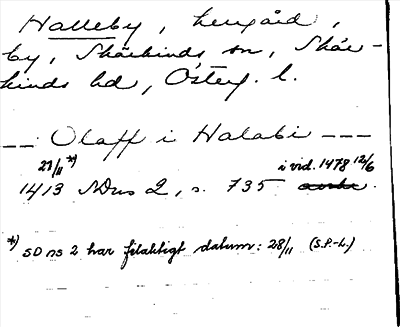 Halleby, herrgård,
by, Skärkinds sn, Skär-
kinds hd, Österg. l.
-- Olaff i Halabi ---
21/11 *) i vid. 1478 12/6
1413 SDns 2, s. 735 avskr.
*) SD ns 2 har felaktigt datum: 28/11 (S.P.-L.)